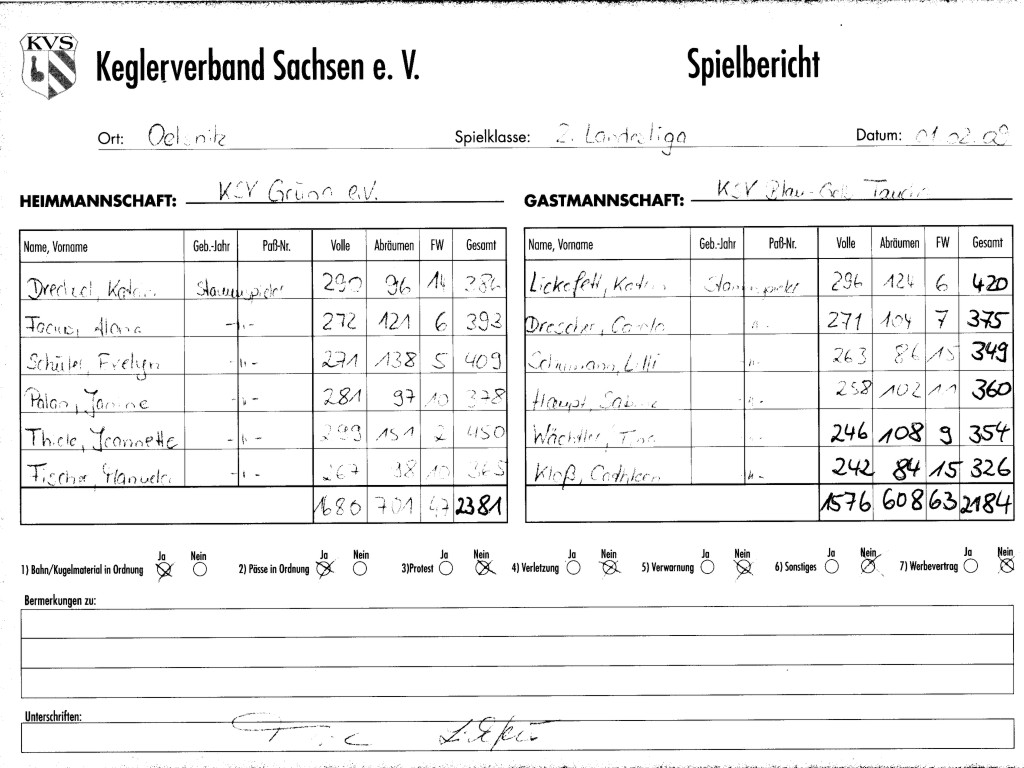 KVS
Keglerverband Sachsen e. V.
Spielbericht
Ort: Oelsnitz Spielklasse: 2. Landesliga Datum: 01.02.09
HEIMMANNSCHAFT: KSV Grüna e.V. GASTMANNSCHAFT: KSV Blau-Gelb Taucha
Name, Vorname Geb.-Jahr Paß-Nr. Volle Abräumen FW Gesamt Name, Vorname Geb.-Jahr Paß-Nr. Volle Abräumen FW Gesamt
Stammspieler 290 96 14 386 Lickefett, Katrin Stammspieler 296 124 6 420
-"- 272 121 6 393 Drescher, Carola "- 271 104 7 375
Schüler, Evelyn -"- 271 138 5 409 Schumann, Lilli 263 86 15 349
Janine -"- 281 97 10 378 Haupt, Sabine "- 258 102 11 360
Thiele, Jeannette -"- 299 151 2 450 Wächtler, Tina "- 246 108 9 354
Fischer, Manuela "- 267 98 10 365 Kloß, Cathleen "- 242 84 15 326
1680 701 47 2381 1576 608 63 2184
Ja Nein Ja Nein Ja Nein Ja Nein Ja Nein Ja Nein Ja Nein
1) Bahn/Kugelmaterial in Ordnung 2) Pässe in Ordnung 3)Protest 4) Verletzung 5) Verwarnung 6) Sonstiges 7) Werbevertrag
Bermerkungen zu:
Unterschriften: